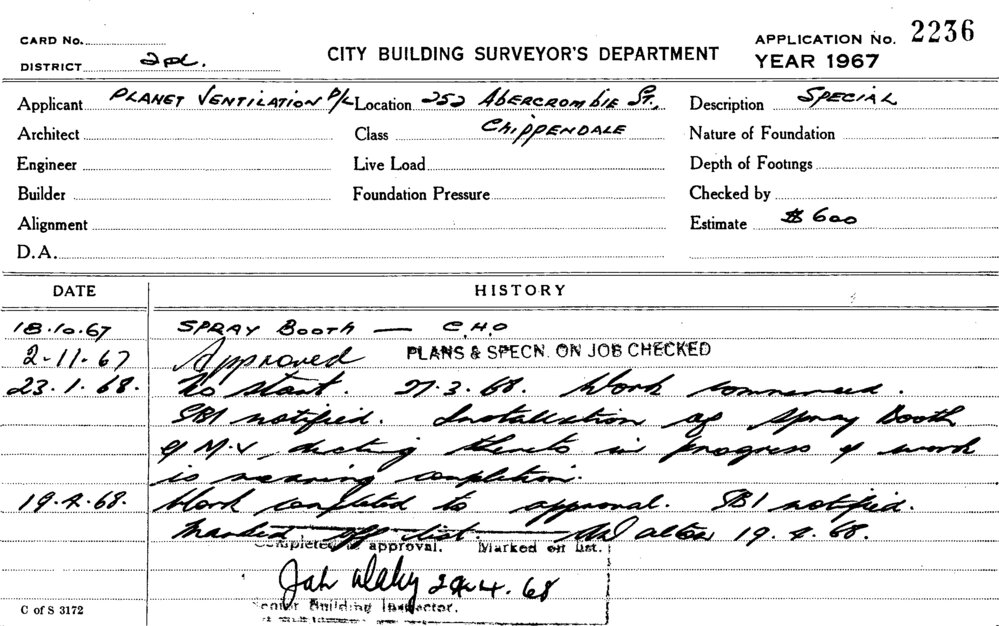 CARD No.
DISTRICT
CITY BUILDING SURVEYOR'S DEPARTMENT
APPLICATION No. 2236
YEAR 1967
Applicant PLANET VENTILATION P/L Location 252 ABERCROMBIE ST., Description SPECIAL
Architect Class CHIPPENDALE Nature of Foundation
Engineer Live Load Depth of Footings
Builder Foundation Pressure Checked by
Alignment Estimate $ 600
D.A.
DATE HISTORY
18.10.67 SPRAY BOOTH — C.H.O
2-11-67 Approved PLANS & SPECN. ON JOB CHECKED
23.1.68. No start. 27.3.68. Work commenced.
SBI notified. Installation of Spray Booth
& M.V, ducting thereto in progress & work
is nearing completion.
19.4.68. Work completed to approval. SBI notified.
Marked off list. 19.4.68.
Completed to approval. Marked off list.
29.4.68
Senior Building Inspector.
C of S 3172